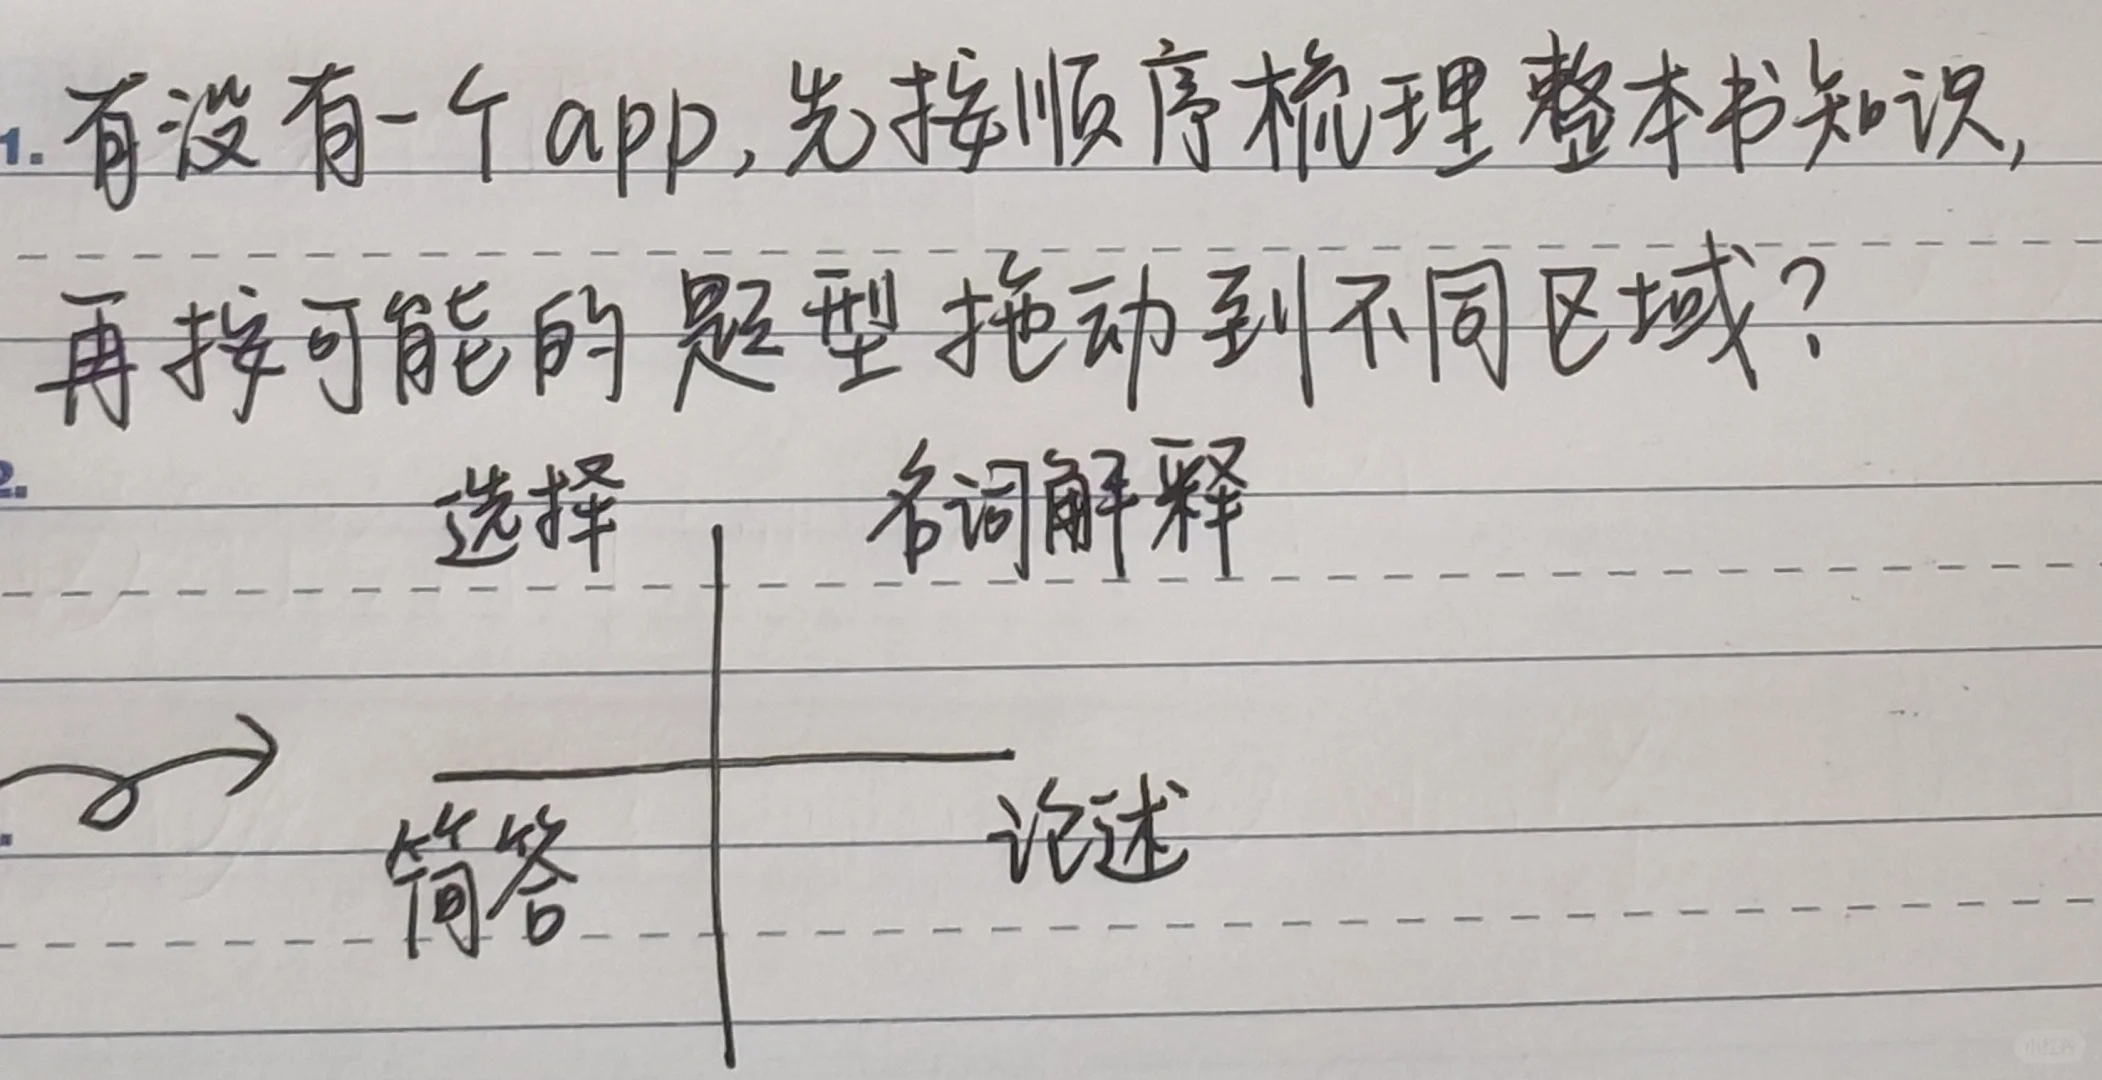 1. 有没有一个app,先按顺序梳理整本书知识,
再按可能的题型拖动到不同区域?
2.
选择 名词解释
简答 论述
小红书